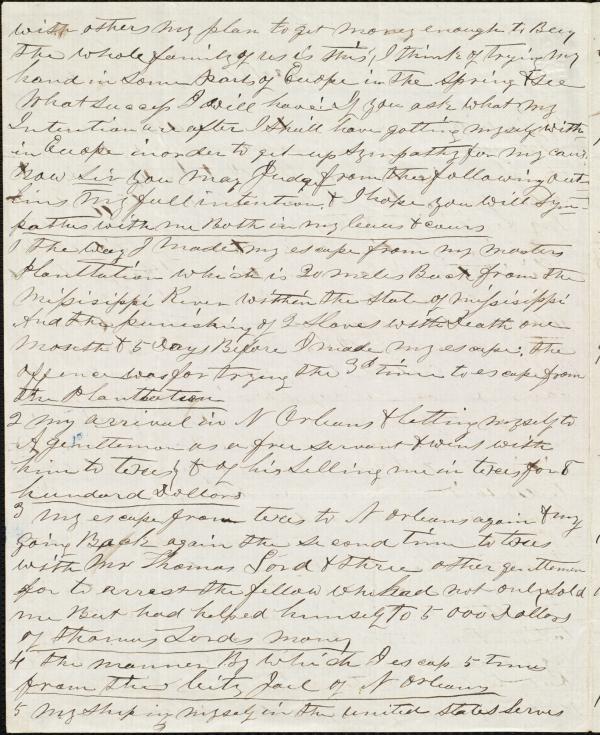 with others my plan to get money enough to Buy
the whole family of us is this, I think of trying my
hand in some Part of Europe in the spring & see
What success I will have. If you ask what my
Intention are after I shall have gotting myself with
in Europe in order to get up sympathy for my caus.
Now Sir you may Judge from the following out
lins my full intention, & I hope you will Sym=
pathis with me Both in my leaus & cours
1 the way I made my escape from my masters
Planttation which is 20 miles Back from the
Missisippi River within the state of missisippi
And the punishing of 2 Slaves with Death one
month & 5 Days Before I made my escape. the
offence was for trying the 3d time to escape from
the Planttation
2 my arrival in N Orleans & letting myself to
A gentleman as a free servant & wens with
him to texes & of his selling me in texes for 8
hundard Dollors
3 my escape from texes to N Orleans again & my
going Back again the second time to texes
with Mr Thomas Lord & three other gentlemen
for to arrest the fellow who had not only Sold
me But had helped himself to 5 000 Dollors
of Thomas Lords money
4 the manner By which I escap 5 time
from the City Jail of N Orleans
5 my ship ing myself in the united states Serves